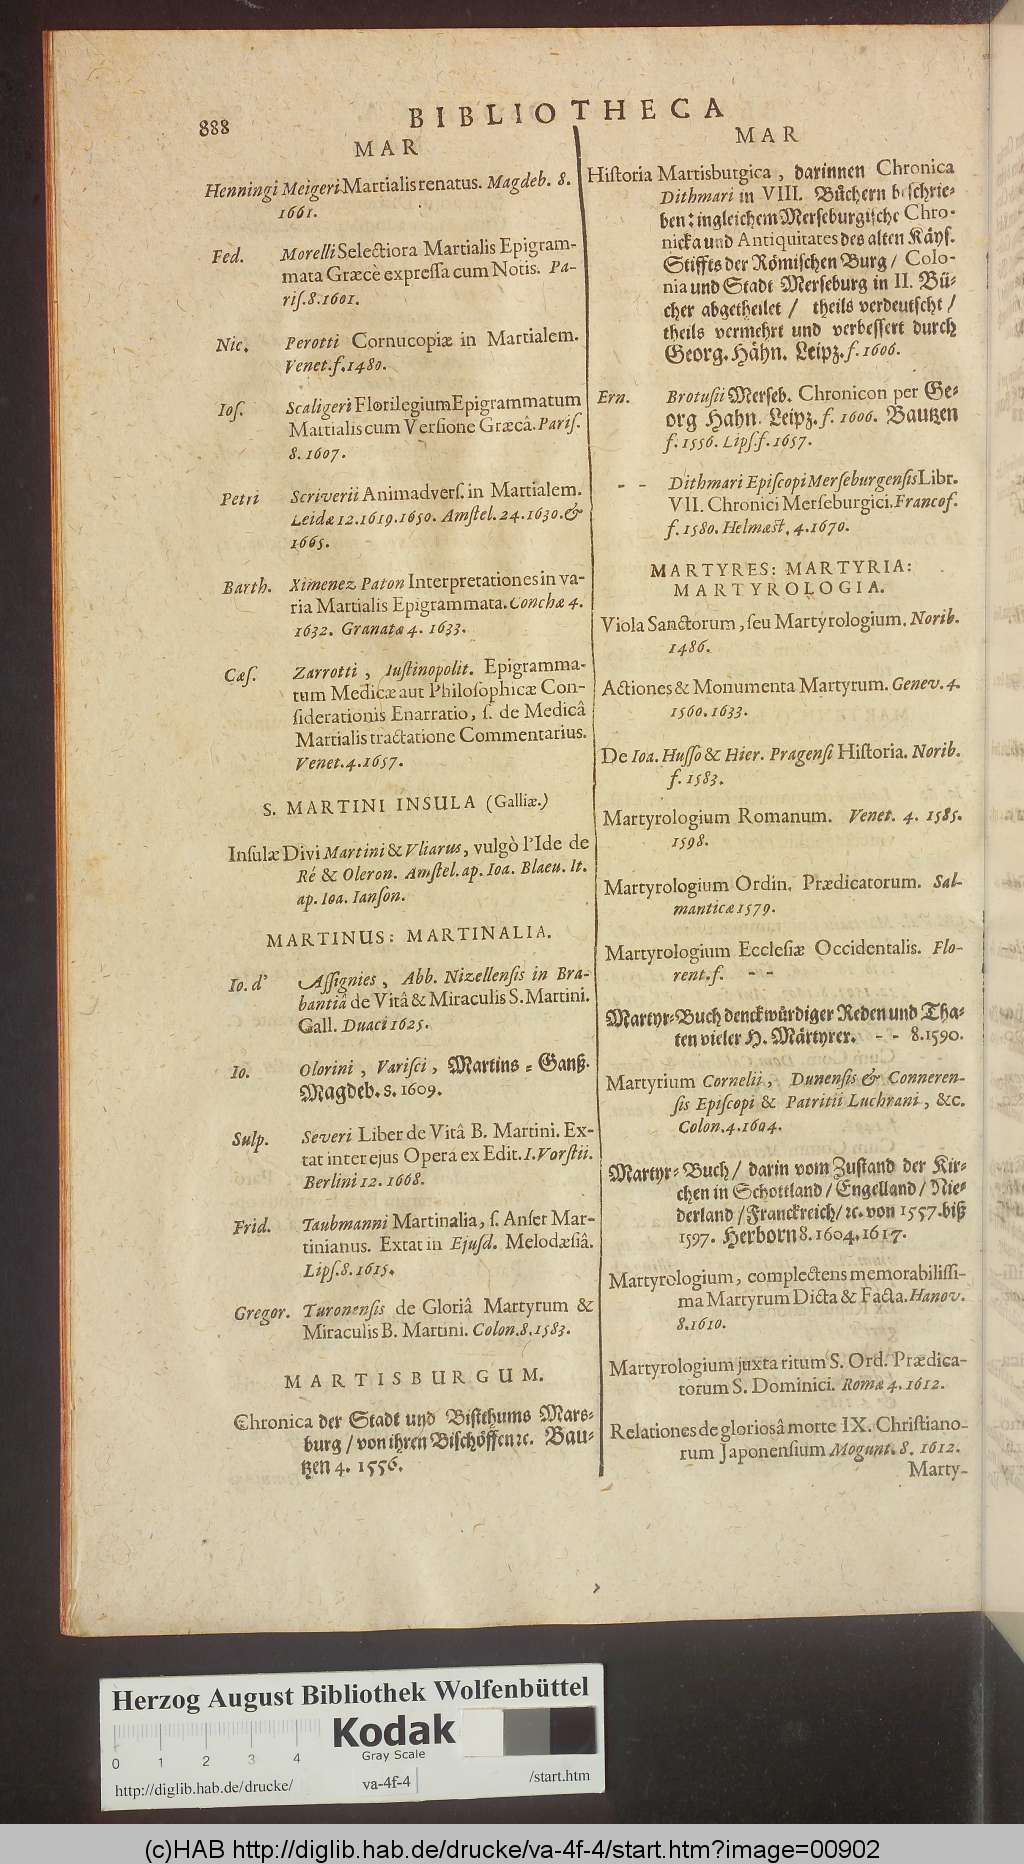 888
BIBLIOTHECA
MAR
Henningi Meigeri Martialis renatus. Magdeb. 8.
1661.
Fed. Morelli Selectiora Martialis Epigram-
mata Græcè expreſſa cum Notis. Pa-
riſ. 8. 1601.
Nic. Perotti Cornucopiæ in Martialem.
Venet. f. 1480.
Ioſ. Scaligeri Florilegium Epigrammatum
Martialis cum Verſione Græcâ. Pariſ.
8. 1607.
Petri Scriverii Animadverſ. in Martialem.
Leidæ 12. 1619. 1650. Amſtel. 24. 1630. &
1665.
Barth. Ximenez Paton Interpretationes in va-
ria Martialis Epigrammata. Conchæ 4.
1632. Granatæ 4. 1633.
Cæſ. Zarrotti, Iuſtinopolit. Epigramma-
tum Medicæ aut Philoſophicæ Con-
ſiderationis Enarratio, ſ. de Medicâ
Martialis tractatione Commentarius.
Venet. 4. 1657.
S. MARTINI INSULA (Galliæ.)
Inſulæ Divi Martini & Vliarus, vulgò l'Ide de
Ré & Oleron. Amſtel. ap. Ioa. Blaeu. It.
ap. Ioa. Ianſon.
MARTINUS: MARTINALIA.
Io. d' Aſſignies, Abb. Nizellenſis in Bra-
bantiâ de Vitâ & Miraculis S. Martini.
Gall. Duaci 1625.
Io. Olorini, Variſci, Martins-Ganß.
Magdeb. 8. 1609.
Sulp. Severi Liber de Vitâ B. Martini. Ex-
tat inter ejus Opera ex Edit. I. Vorſtii.
Berlini 12. 1668.
Frid. Taubmanni Martinalia, ſ. Anſer Mar-
tinianus. Extat in Ejuſd. Melodæſiâ.
Lipſ. 8. 1615.
Gregor. Turonenſis de Gloriâ Martyrum &
Miraculis B. Martini. Colon. 8. 1583.
MARTISBURGUM.
Chronica der Stadt und Biſthums Mars-
burg / von ihren Biſchöffen ꝛc. Bau-
tzen 4. 1556.
MAR
Hiſtoria Martisburgica, darinnen Chronica
Dithmari in VIII. Büchern beſchrie-
ben: ingleichem Merſeburgiſche Chro-
nicka und Antiquitates des alten Käyſ.
Stiffts der Römiſchen Burg / Colo-
nia und Stadt Merſeburg in II. Bü-
cher abgetheilet / theils verdeutſcht /
theils vermehrt und verbeſſert durch
Georg. Hähn. Leipz. f. 1606.
Ern. Brotuſii Merſeb. Chronicon per Ge-
org Hahn. Leipz. f. 1606. Bautzen
f. 1556. Lipſ. f. 1657.
- - Dithmari Epiſcopi Merſeburgenſis Libr.
VII. Chronici Merſeburgici. Francof.
f. 1580. Helmæſt. 4. 1670.
MARTYRES: MARTYRIA:
MARTYROLOGIA.
Viola Sanctorum, ſeu Martyrologium. Norib.
1486.
Actiones & Monumenta Martyrum. Genev. 4.
1560. 1633.
De Ioa. Huſſo & Hier. Pragenſi Hiſtoria. Norib.
f. 1583.
Martyrologium Romanum. Venet. 4. 1585.
1598.
Martyrologium Ordin. Prædicatorum. Sal-
manticæ 1579.
Martyrologium Eccleſiæ Occidentalis. Flo-
rent. f. - -
Martyr-Buch denckwürdiger Reden und Tha-
ten vieler H. Märtyrer. - - 8. 1590.
Martyrium Cornelii, Dunenſis & Conneren-
ſis Epiſcopi & Patritii Luchrani, &c.
Colon. 4. 1604.
Martyr-Buch / darin vom Zuſtand der Kir-
chen in Schottland / Engelland / Nie-
derland / Franckreich / ꝛc. von 1557. biß
1597. Herborn 8. 1604. 1617.
Martyrologium, complectens memorabiliſſi-
ma Martyrum Dicta & Facta. Hanov.
8. 1610.
Martyrologium juxta ritum S. Ord. Prædica-
torum S. Dominici. Romæ 4. 1612.
Relationes de glorioſâ morte IX. Chriſtiano-
rum Japonenſium Mogunt. 8. 1612.
Marty-
Herzog August Bibliothek Wolfenbüttel
Kodak
Gray Scale
0 1 2 3 4
http://diglib.hab.de/drucke/ va-4f-4 /start.htm
(c)HAB http://diglib.hab.de/drucke/va-4f-4/start.htm?image=00902